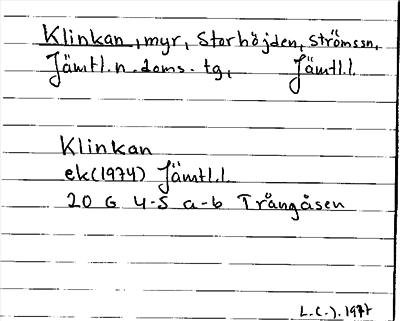 Klinkan, myr, Storhöjden, Strömssn,
Jämtl. n. doms. tg, Jämtl.l.
Klinkan
ek(1974) Jämtl.l.
20 G 4-5 a-b Trångåsen
L.C.). 1977